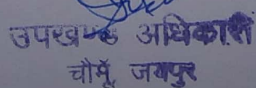 उपखण्ड अधिकारी
चौमूँ, जयपुर